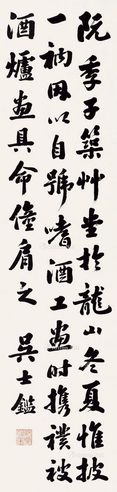 阮季子築艸堂於龍山冬夏惟披
一衲因以自號嗜酒工畫時攜襆被
酒爐畫具命僮肩之
吳士鑑